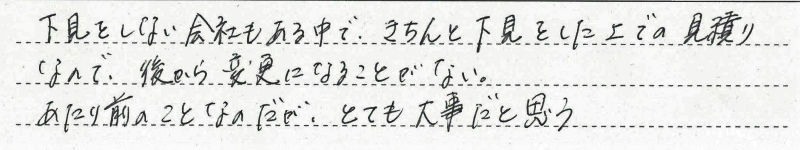 下見をしない会社もある中で、きちんと下見をした上での見積り
なので、後から変更になることがない。
あたり前のことなのだが、とても大事だと思う